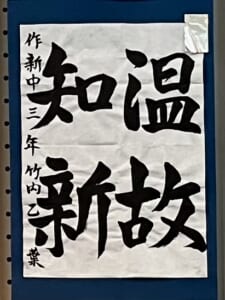 温故
知新
作新中三年竹内乙葉